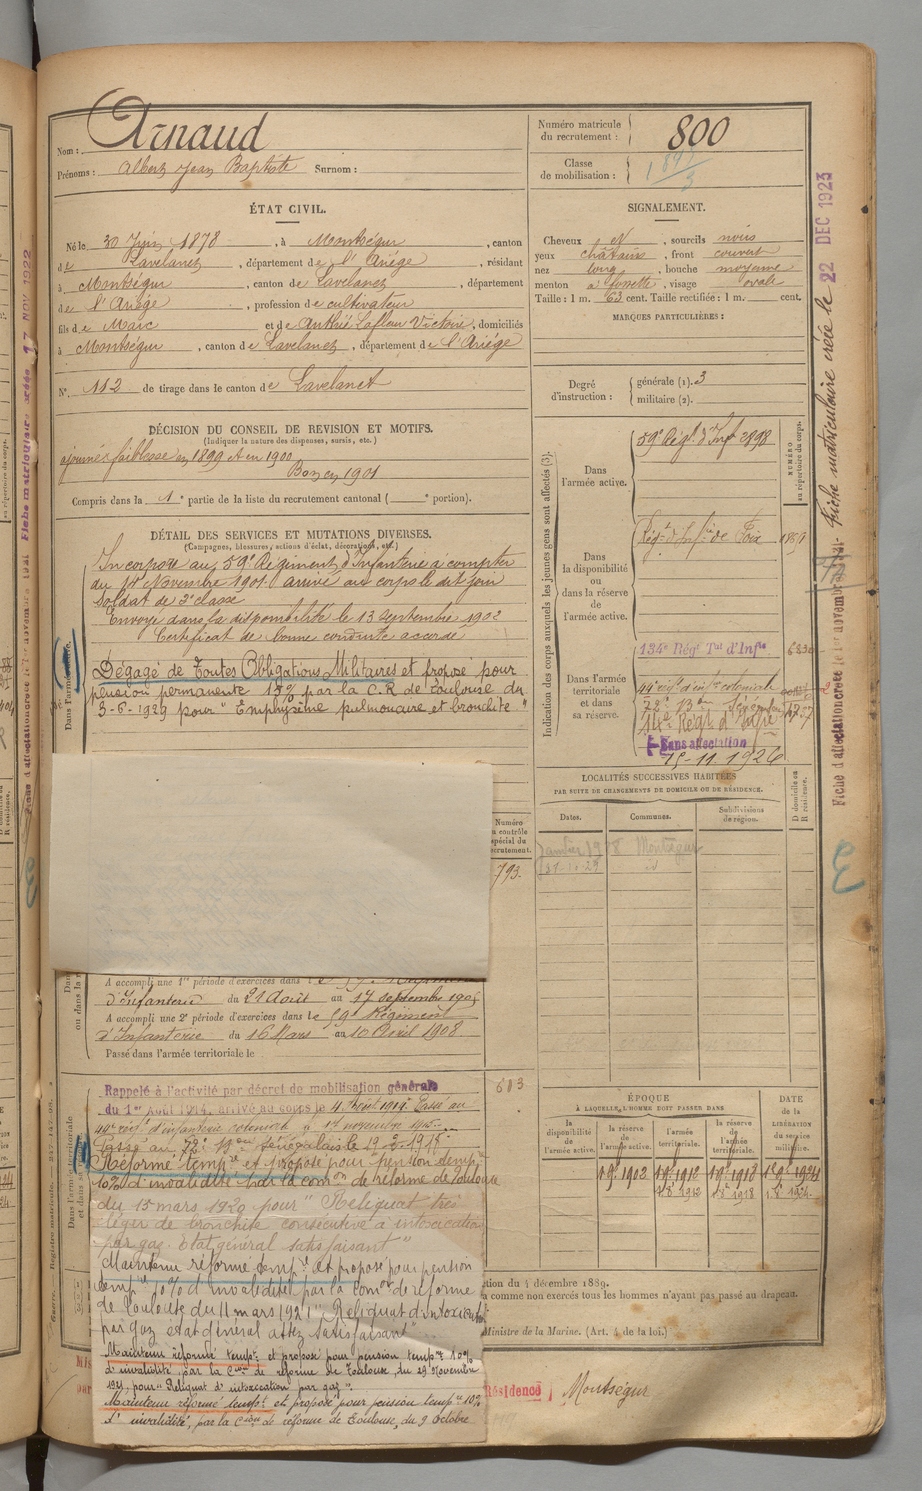 Nom : Arnaud
Prénoms : Albert Jean Baptiste Surnom :
Numéro matricule du recrutement : 800
Classe de mobilisation :
ÉTAT CIVIL.
Né le 30 Juin 1878, à Montségur, canton
de Lavelanet, département de l'Ariège, résidant
à Montségur, canton de Lavelanet, département
de l'Ariège, profession de cultivateur
fils de Marc et de Authié Lafleur Victoire, domiciliés
à Montségur, canton de Lavelanet, département de l'Ariège
N° 112 de tirage dans le canton de Lavelanet
SIGNALEMENT.
Cheveux N, sourcils noirs
yeux châtains, front couvert
nez long, bouche moyenne
menton à fossette, visage ovale
Taille : 1 m. 63 cent. Taille rectifiée : 1 m. cent.
MARQUES PARTICULIÈRES :
Degré d'instruction : générale (1). 3
militaire (2).
DÉCISION DU CONSEIL DE REVISION ET MOTIFS.
(Indiquer la nature des dispenses, sursis, etc.)
ajourné faiblesse en 1899 et en 1900
Bon en 1901
Compris dans la 1e partie de la liste du recrutement cantonal ( e portion).
DÉTAIL DES SERVICES ET MUTATIONS DIVERSES.
(Campagnes, blessures, actions d'éclat, décorations, etc.)
Incorporé au 59e Régiment d'Infanterie à compter
du 14 Novembre 1901 arrivé au corps le dit jour
soldat de 2e classe
Envoyé dans la disponibilité le 13 Septembre 1902
Certificat de bonne conduite accordé
Dégagé de Toutes Obligations Militaires et proposé pour
pension permanente 15% par la C.R de Toulouse du
3-6-1929 pour "Emphysème pulmonaire et bronchite"
Indication des corps auxquels les jeunes gens sont affectés (3).
NUMÉRO au répertoire du corps.
Dans l'armée active.
59e Régt d'Inf 2898
Dans la disponibilité ou dans la réserve de l'armée active.
Régt d'Inftie de Foix
Dans l'armée territoriale et dans sa réserve.
134e Régt Tal d'Infie
44e régt d'infie coloniale
72e Bon Sénégalais
14e Régt d'Infie
Sans affectation
15-11-1926
Fiche matriculaire créée le 22 DEC 1923
LOCALITÉS SUCCESSIVES HABITÉES
PAR SUITE DE CHANGEMENTS DE DOMICILE OU DE RÉSIDENCE.
Dates. Communes. Subdivisions de région. D domicile ou R résidence.
Janvier 1908 Montségur
id
Numéro au contrôle spécial du recrutement.
793
A accompli une 1re période d'exercices dans le 59e Régiment
d'Infanterie du 21 Août au 17 Septembre 1905
A accompli une 2e période d'exercices dans le 59e Régiment
d'Infanterie du 16 Mars au 10 Avril 1908
Passé dans l'armée territoriale le
Rappelé à l'activité par décret de mobilisation générale
du 1er Août 1914, arrivé au corps le 4 août 1914. Passé au
44e régt d'infanterie coloniale le 17 novembre 1915
Passé au 72e Bon Sénégalais le
Réformé tempre et proposé pour pension tempre
10% d'invalidité par la comon de réforme de Toulouse
du 15 mars 1920 pour "Reliquat très
léger de bronchite consécutive à intoxication
par gaz. Etat général satisfaisant"
Maintenu réformé tempre et proposé pour pension
tempre 10% d'invalidité par la comon de réforme
de Toulouse du 11 mars 1921 "Reliquat d'intoxication
par gaz état général assez satisfaisant"
Maintenu réformé tempre et proposé pour pension tempre 10%
d'invalidité, par la Cion de réforme de Toulouse, du 29 Novembre
1921, pour "Reliquat d'intoxication par gaz".
Maintenu réformé tempre et proposé pour pension tempre 10%
d'invalidité, par la Cion de réforme de Toulouse, du 9 Octobre
ÉPOQUE
À LAQUELLE L'HOMME DOIT PASSER DANS
la disponibilité de l'armée active. la réserve de l'armée active. l'armée territoriale. la réserve de l'armée territoriale.
DATE de la LIBÉRATION du service militaire.
ction du 4 décembre 1889.
a comme non exercés tous les hommes n'ayant pas passé au drapeau.
Ministre de la Marine. (Art. 4 de la loi.)
Résidence Montségur